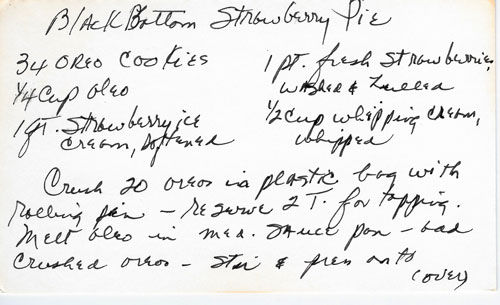 Black Bottom Strawberry Pie
34 OREO COOKIES
1/4 Cup oleo
1 qt. Strawberry ice
cream, softened
1 pt. fresh strawberries,
washed & hulled
1/2 cup whipping cream,
whipped
Crush 20 oreos in plastic bag with
rolling pin - reserve 2 T. for topping.
Melt oleo in med. sauce pan - add
crushed oreos - stir & press onto
(over)